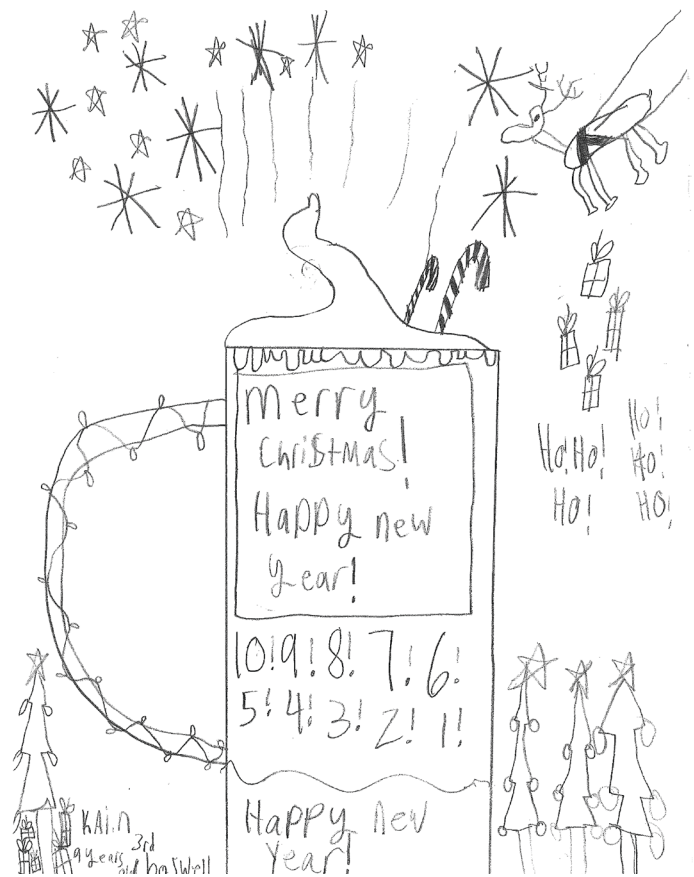 Merry
Christmas!
Happy new
year!
Ho! Ho!
Ho!
Ho!
Ho!
Ho!
10! 9! 8! 7! 6!
5! 4! 3! 2! 1!
Happy new
Year!
KAin
9 years old
3rd
boswell